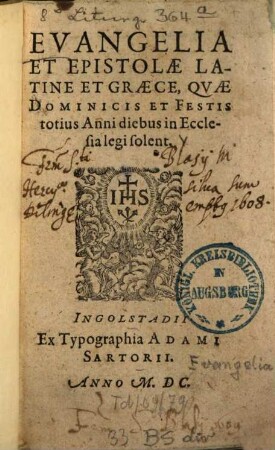 8° Liturg. 364ᵃ
EVANGELIA
ET EPISTOLÆ LA-
TINE ET GRÆCE, QVÆ
DOMINICIS ET FESTIS
totius Anni diebus in Eccle-
sia legi solent.
Blasij M
Sum
1608.
IHS
KÖNIGL. KREISBIBLIOTHEK
IN
AUGSBURG
INGOLSTADII
Ex Typographia ADAMI
SARTORII.
Evangelia
ANNO M. DC.
33 BS